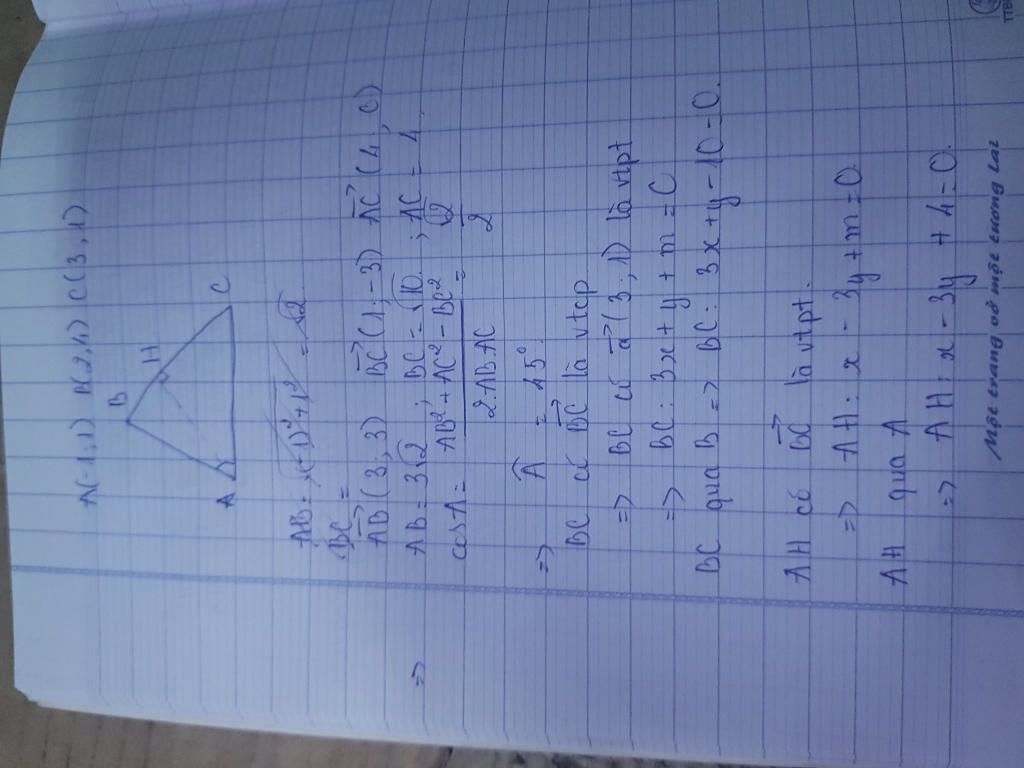 A(-1,1) B(2,4) C(3,1)
B
H
A
C
AB = √(-1)² + 1² = √2
BC =
AB→ (3; 3) BC→ (1; -3) AC→ (4; 0)
=> AB = 3√2; BC = √10; AC = 4.
cos A = AB² + AC² - BC² / 2.AB.AC = √2 / 2
=> Â = 45°
BC có BC→ là vtcp
=> BC có a→ (3; 1) là vtpt
=> BC: 3x + y + m = 0
BC qua B => BC: 3x + y - 10 = 0.
AH có BC→ là vtpt.
=> AH: x - 3y + m = 0
AH qua A
=> AH: x - 3y + 4 = 0.
Một trang vở một tương lai